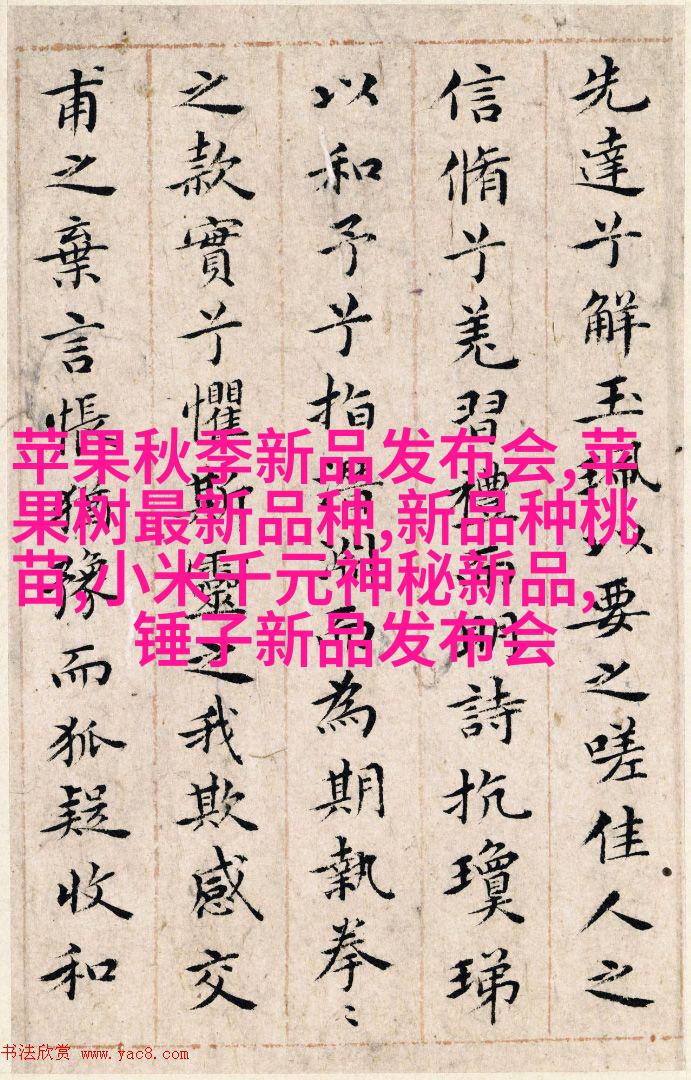 先達兮解玉珮以要之嗟佳人之
信脩兮羌習禮而明詩抗瓊珶
以和予兮指而為期執拳〻
之款實兮懼斯靈之我欺感交
甫之棄言悵猶豫而狐疑收和
苹果秋季新品发布会,苹
果树最新品种,新品种桃
苗,小米千元神秘新品,
锤子新品发布会
书法欣赏 www.yac8.com